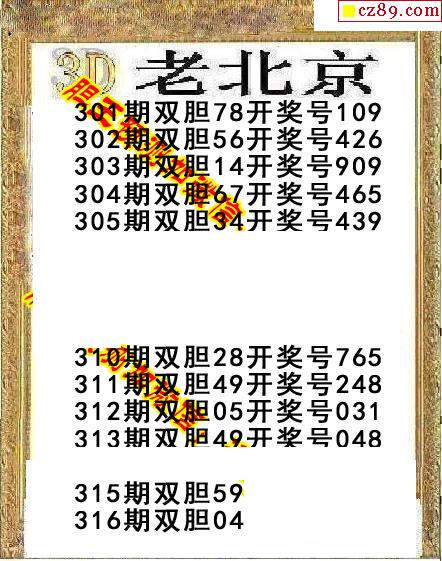 cz89.com
3D 老北京
301期双胆78开奖号109
302期双胆56开奖号426
303期双胆14开奖号909
304期双胆67开奖号465
305期双胆34开奖号439
310期双胆28开奖号765
311期双胆49开奖号248
312期双胆05开奖号031
313期双胆49开奖号048
315期双胆59
316期双胆04